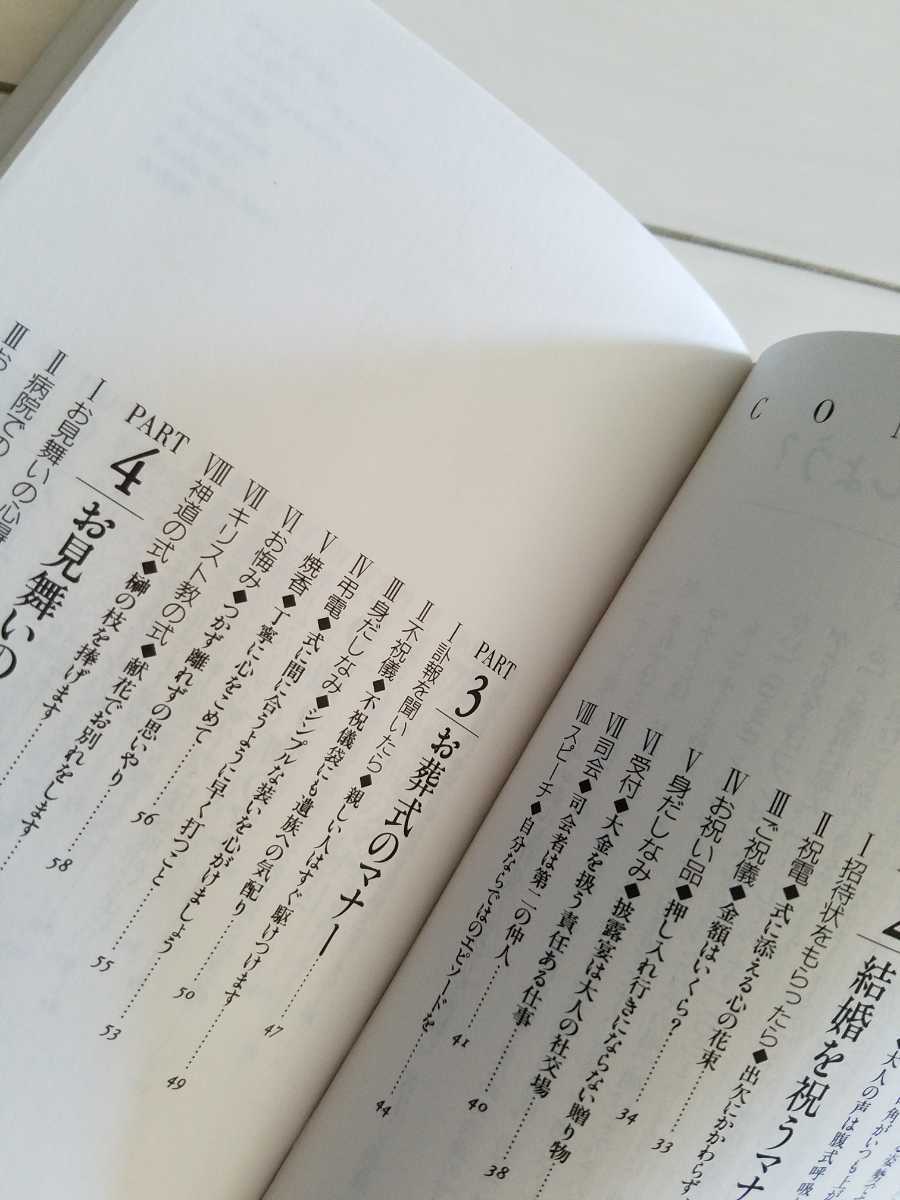 CO
しよう?
大人の声は腹式呼吸
結婚を祝うマナ
Ⅰ 招待状をもらったら◆出欠にかかわらず
Ⅱ 祝電◆式に添える心の花束
Ⅲ ご祝儀◆金額はいくら?……33
Ⅳ お祝い品◆押し入れ行きにならない贈り物……34
Ⅴ 身だしなみ◆披露宴は大人の社交場……38
Ⅵ 受付◆大金を扱う責任ある仕事……40
Ⅶ 司会◆司会者は第二の仲人……41
Ⅷ スピーチ◆自分ならではのエピソードを……44
PART 3 お葬式のマナー
Ⅰ 訃報を聞いたら◆親しい人はすぐ駆けつけます……47
Ⅱ 不祝儀◆不祝儀袋にも遺族への気配り……49
Ⅲ 身だしなみ◆シンプルな装いを心がけましょう……50
Ⅳ 弔電◆式に間に合うように早く打つこと……53
Ⅴ 焼香◆丁寧に心をこめて……55
Ⅵ お悔み◆つかず離れずの思いやり……56
Ⅶ キリスト教の式◆献花でお別れをします……58
Ⅷ 神道の式◆榊の枝を捧げます……
PART 4 お見舞いの
Ⅰ お見舞いの心得
Ⅱ 病院での
Ⅲ お